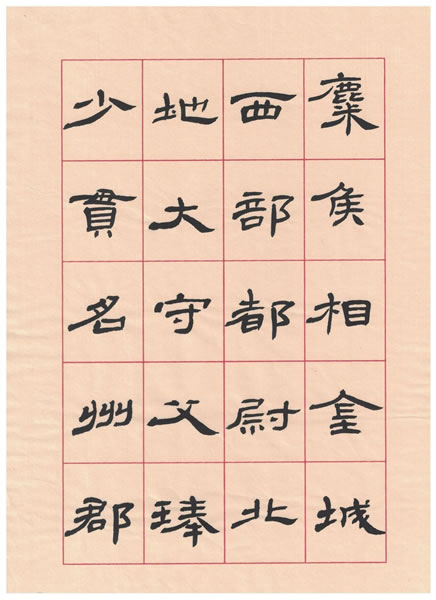 麋侯相金城
西部都尉北
地大守父琫
少貫名州郡